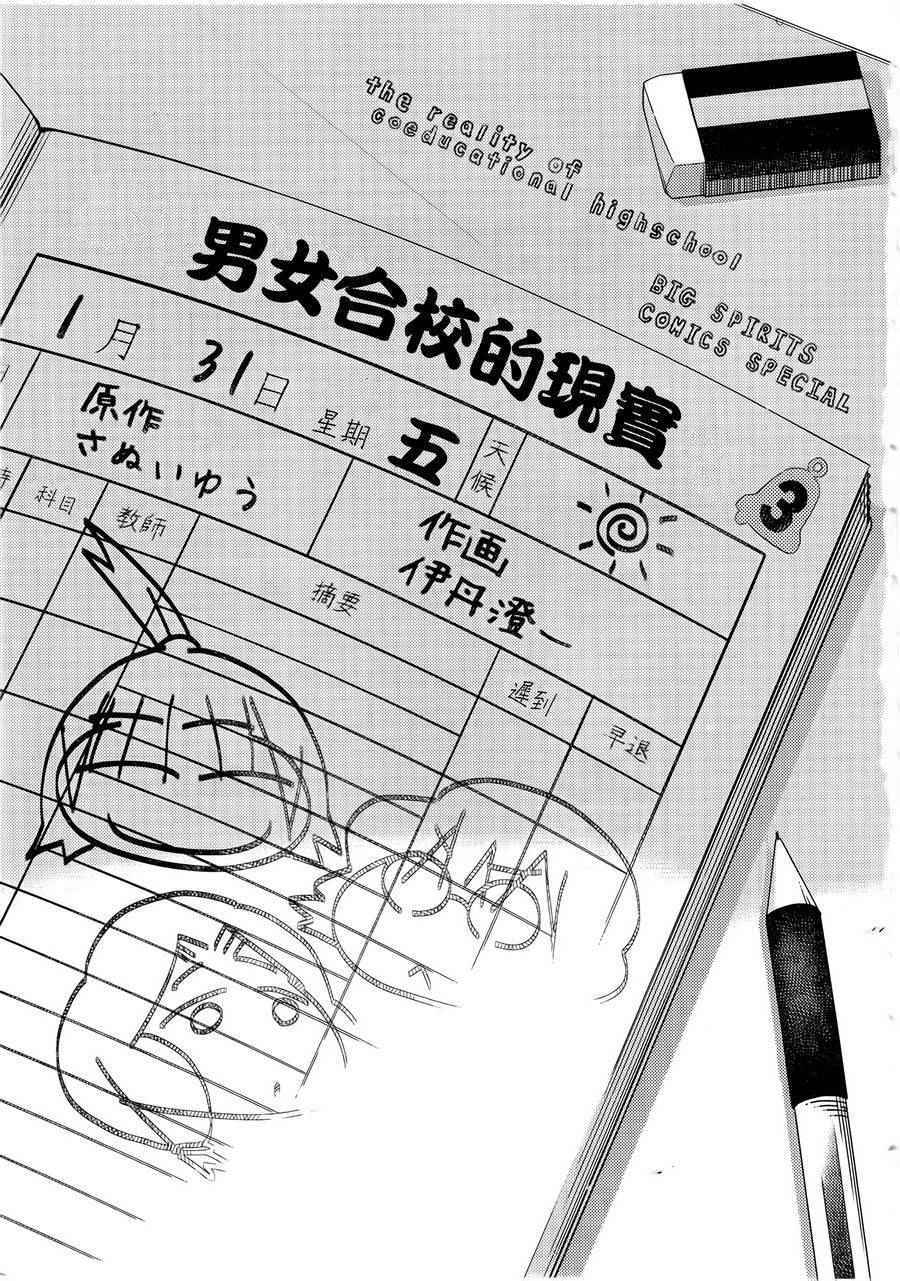 the reality of
coeducational highschool
BIG SPIRITS
COMICS SPECIAL
男女合校的現實
3
1月31日 星期五 天候
原作
さぬいゆう
作画
伊丹澄一
科目 教師 摘要 遲到 早退